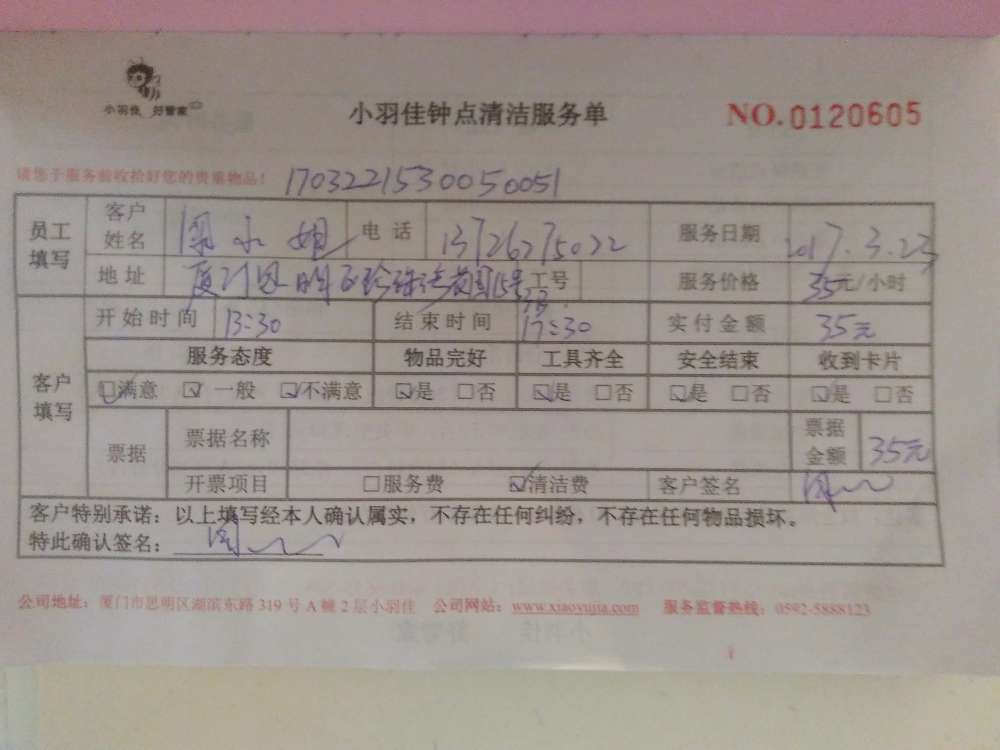 小羽佳 好管家
小羽佳钟点清洁服务单
NO.0120605
请您于服务前收拾好您的贵重物品!
1703221530050051
员工填写
客户姓名 周小姐 电话 13726275022 服务日期 2017.3.23
地址 厦门思明区珍珠湾花园15号 工号 服务价格 35元/小时
客户填写
开始时间 13:30 结束时间 17:30 实付金额 35元
服务态度 物品完好 工具齐全 安全结束 收到卡片
☑满意 ☑一般 ☑不满意 ☑是 □否 ☑是 □否 ☑是 □否 ☑是 □否
票据 票据名称 票据金额 35元
开票项目 □服务费 ☑清洁费 客户签名
客户特别承诺:以上填写经本人确认属实,不存在任何纠纷,不存在任何物品损坏。
特此确认签名:
公司地址:厦门市思明区湖滨东路319号A幢2层小羽佳 公司网站:www.xiaoyujia.com 服务监督热线:0592-5888123